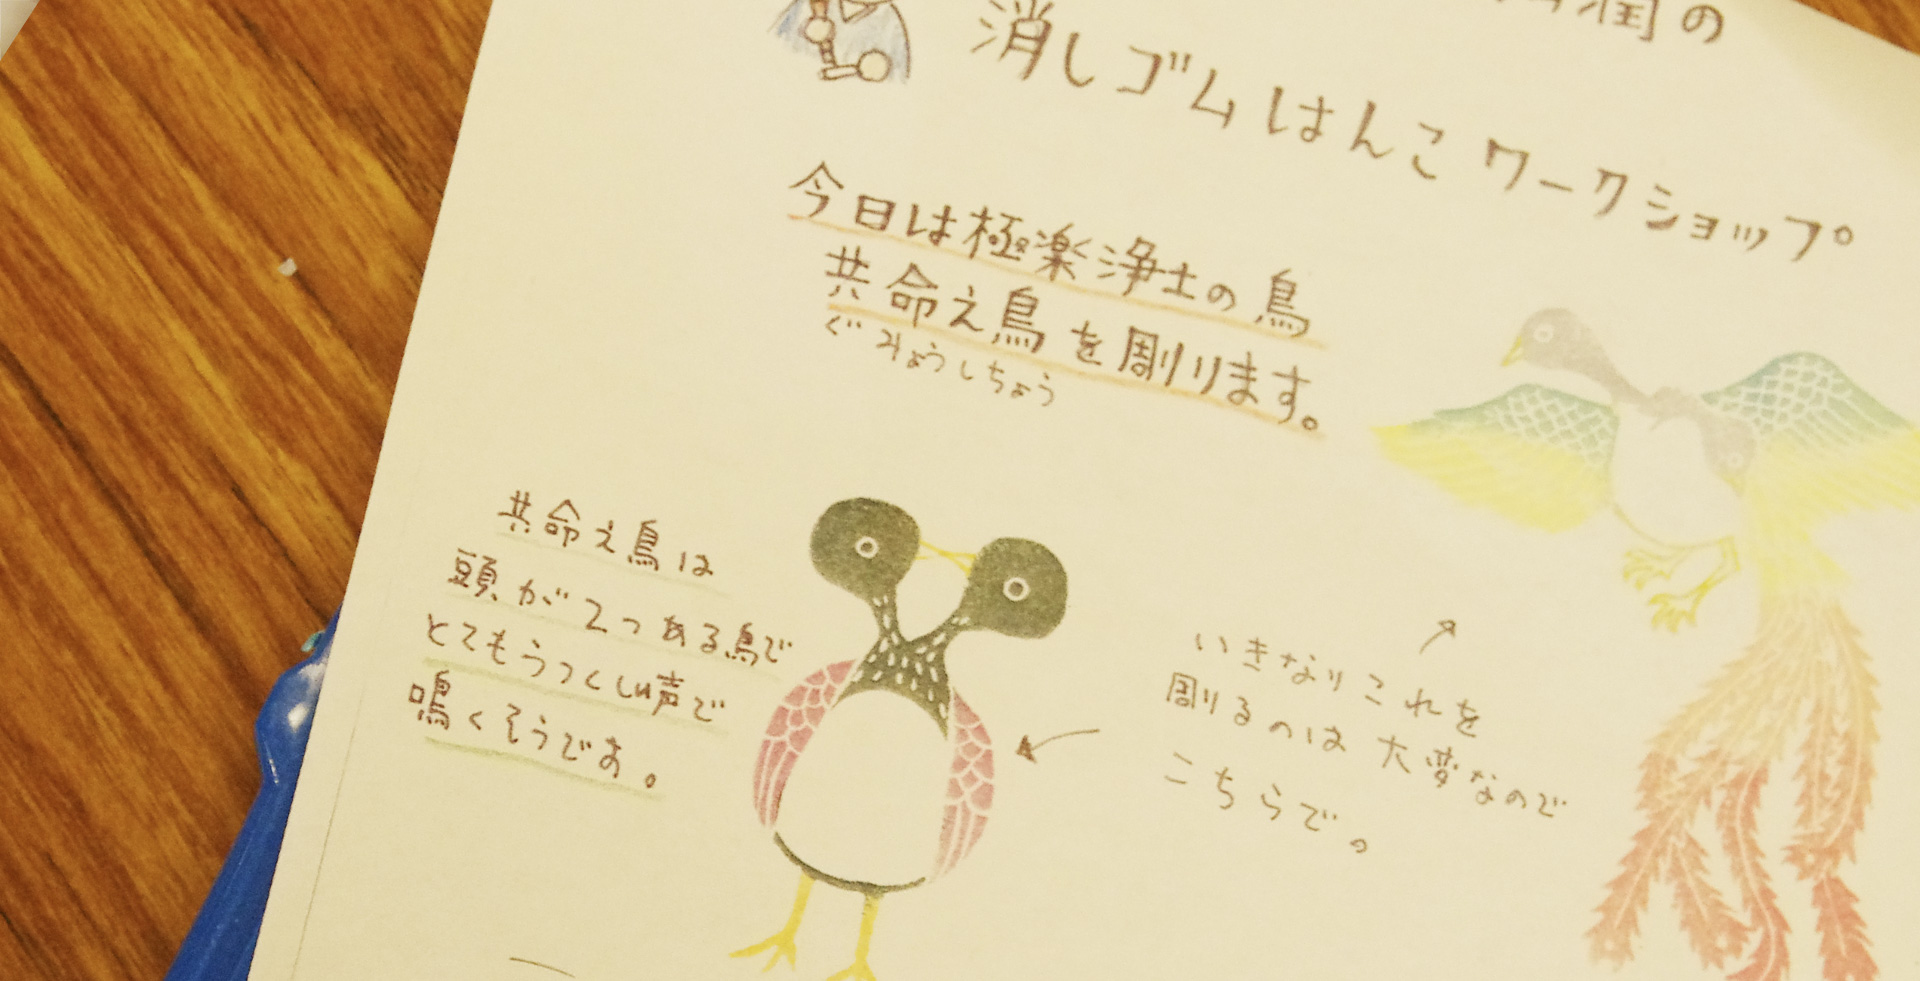 潤の
消しゴムはんこワークショップ
今日は極楽浄土の鳥
共命之鳥を彫ります。
ぐみょうしちょう
共命之鳥は
頭が2つある鳥で
とてもうつくしい声で
鳴くそうです。
いきなりこれを
彫るのは大変なので
こちらで。